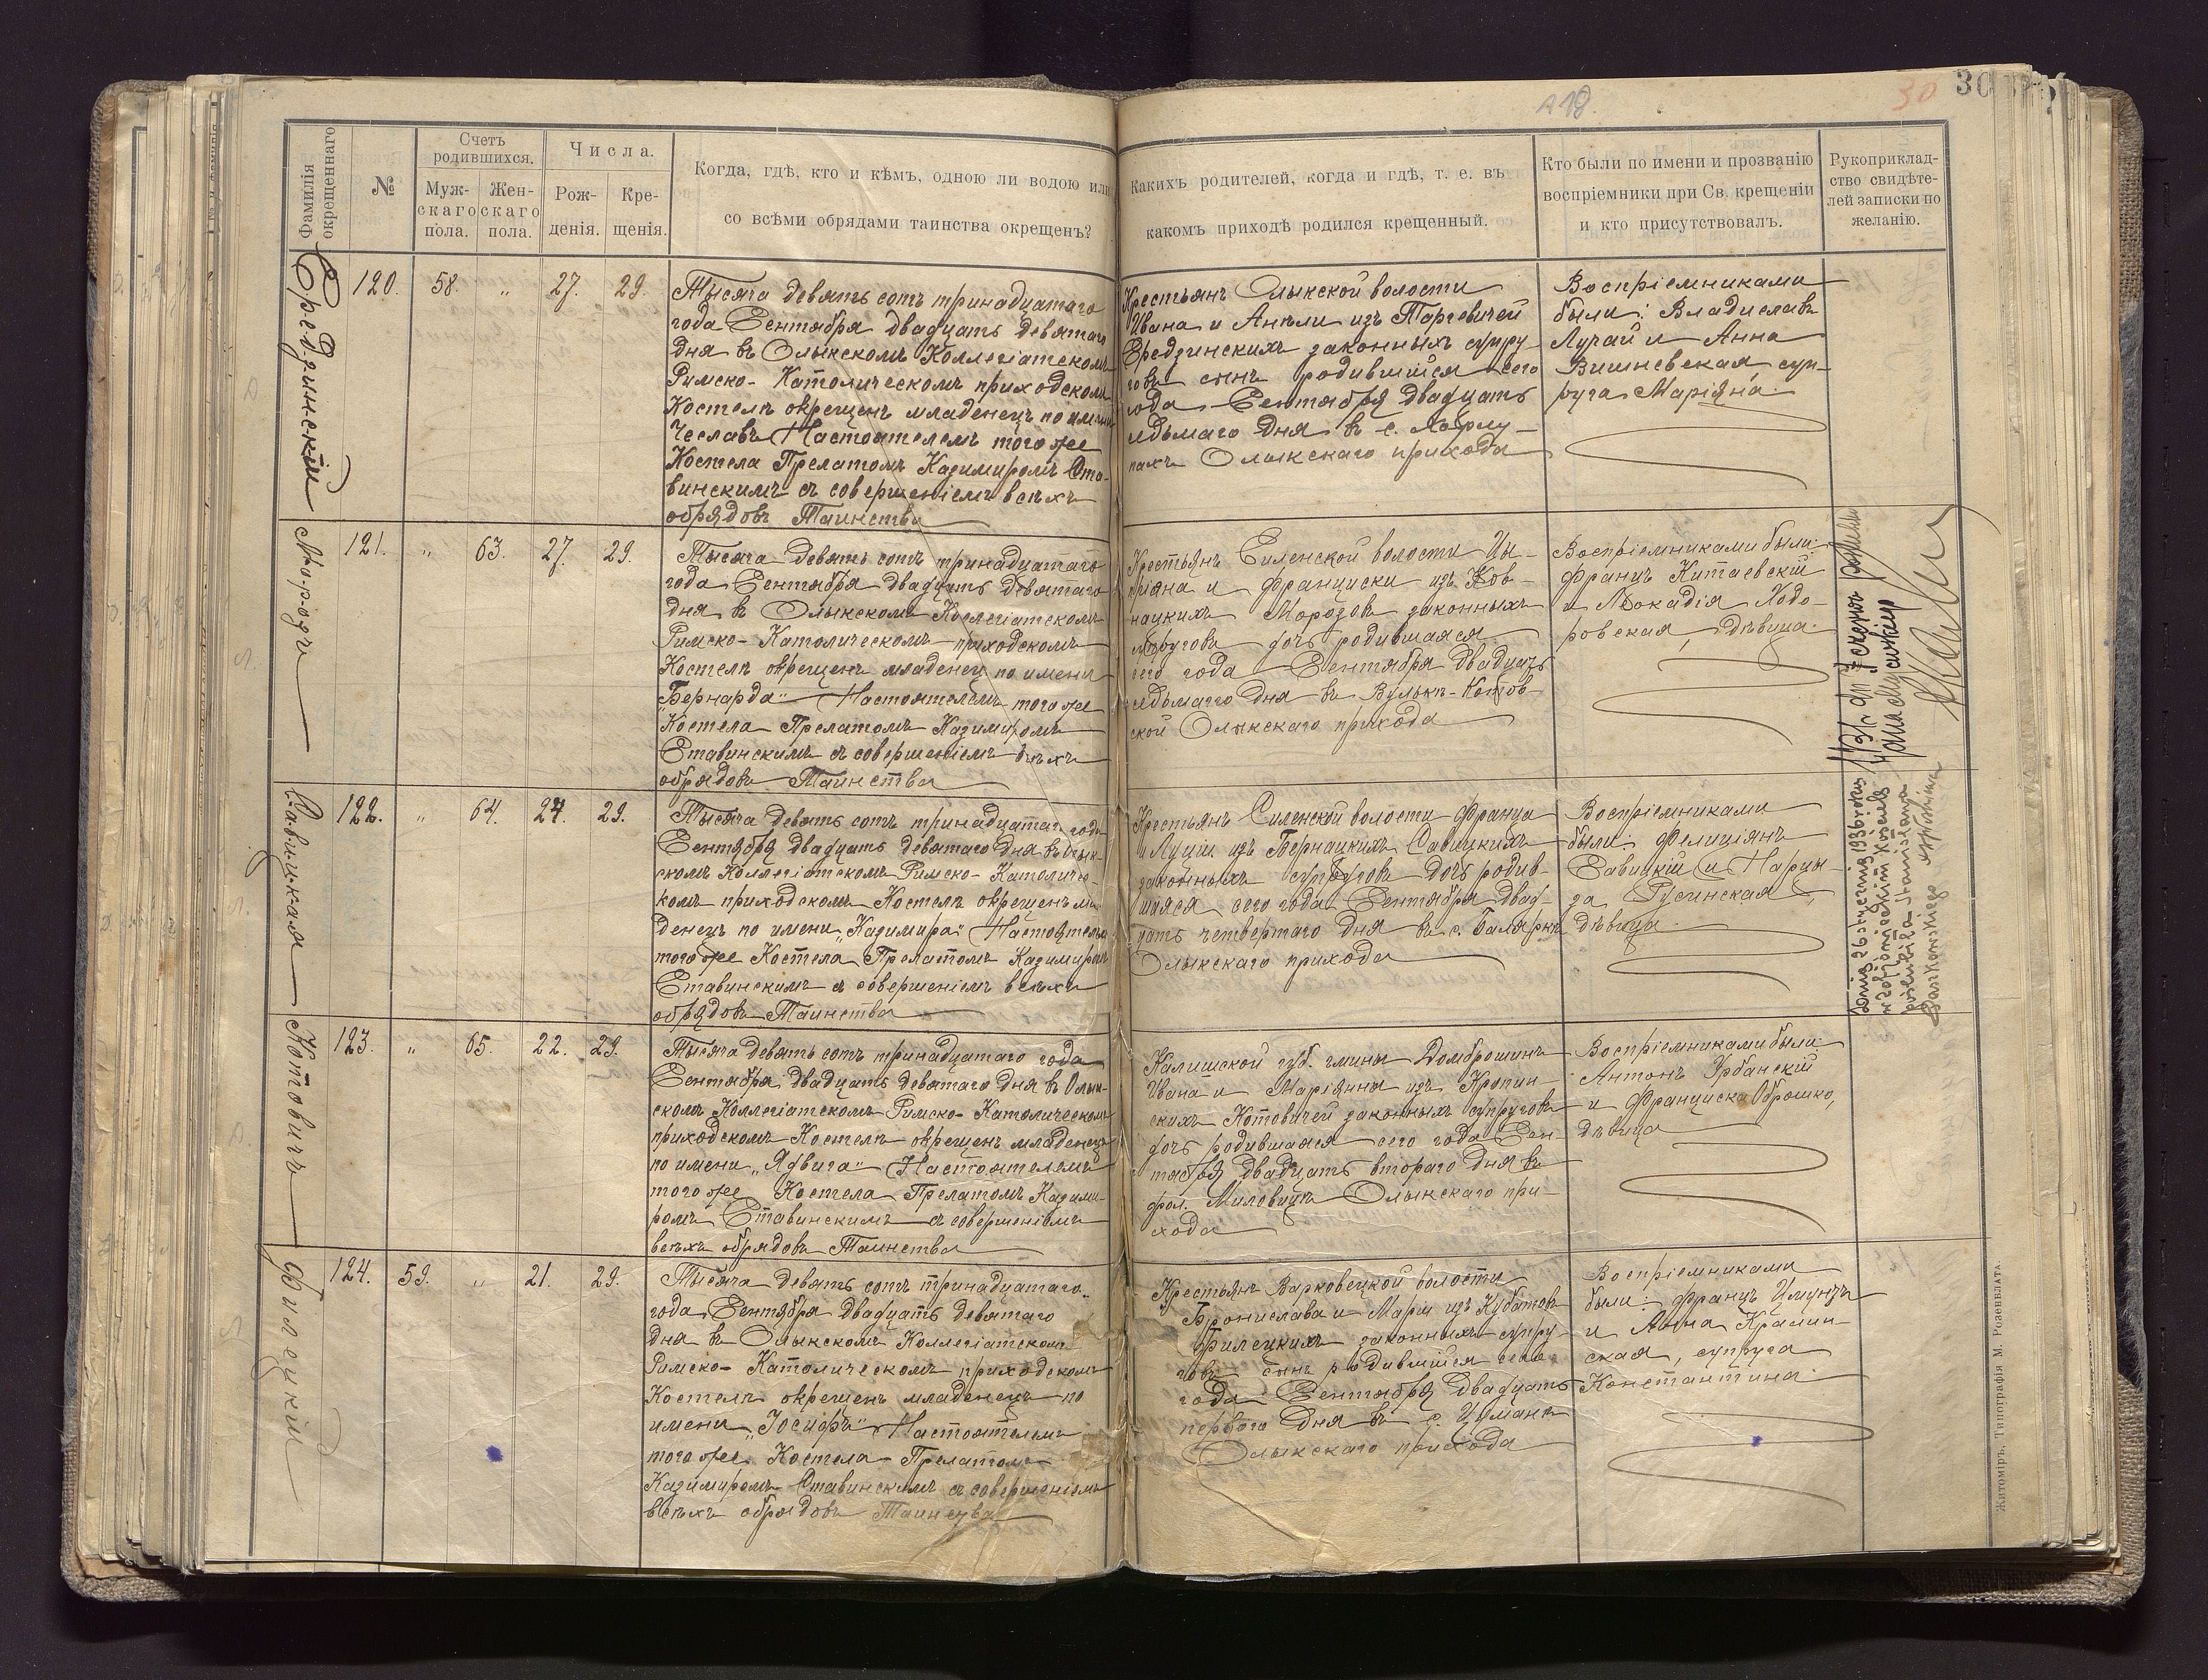 30
Фамилія окрещеннаго
№
Счетъ родившихся.
Мужскаго пола.
Женскаго пола.
Числа.
Рожденія.
Крещенія.
Когда, гдѣ, кто и кѣмъ, одною ли водою или
со всѣми обрядами таинства окрещенъ?
Какихъ родителей, когда и гдѣ, т. е. въ
какомъ приходѣ родился крещенный.
Кто были по имени и прозванію
воспріемники при Св. крещеніи
и кто присутствовалъ.
Рукоприклад-
ство свидѣте-
лей записки по
желанію.
Средзинскій
120. 58. „ 27. 29.
Тысяча девятьсотъ тринадцатаго
года Сентября двадцать девятаго
дня въ Олыкскомъ Коллегіатскомъ
Римско-Католическомъ приходскомъ
Костелѣ окрещенъ младенецъ по имени
Чеславъ Настоятелемъ того же
Костела Прелатомъ Казимиромъ Ста-
винскимъ съ совершеніемъ всѣхъ
обрядовъ Таинства
Крестьянъ Олыкской волости
Ивана и Анели изъ
Средзинскихъ законныхъ супру-
говъ сынъ родившійся сего
года Сентября двадцать
седьмаго дня въ с.
Олыкскаго прихода
Воспріемниками
были: Владиславъ
Лучай и Анна
Вишневская, суп-
руга Маріана.
Морозъ
121. „ 63. 27. 29.
Тысяча девятьсотъ тринадцатаго
года Сентября двадцать девятаго
дня въ Олыкскомъ Коллегіатскомъ
Римско-Католическомъ приходскомъ
Костелѣ окрещенъ младенец по имени
„Бернарда" Настоятелемъ того же
Костела Прелатомъ Казимиромъ
Ставинскимъ съ совершеніемъ всѣхъ
обрядовъ Таинства
Крестьянъ Силенской волости Цы-
пріяна и Франциски изъ Ков-
нацкихъ Морозовъ законныхъ
супруговъ дочь родившаяся
сего года Сентября двадцать
седьмаго дня въ Вулькѣ-Котов-
ской Олыкскаго прихода
Воспріемниками были:
Францъ Китаевскій
и Леокадія Ходо-
ровская, дѣвица.
Савицкая
122. „ 64. 24. 29.
Тысяча девятьсотъ тринадцатаго года
Сентября двадцать девятаго дня въ Олык-
скомъ Коллегіатскомъ Римско-Католичес-
комъ приходскомъ Костелѣ окрещенъ мла-
денецъ по имени „Казимира" Настоятелемъ
того же Костела Прелатомъ Казимиромъ
Ставинскимъ съ совершеніемъ всѣхъ
обрядовъ Таинства
Крестьянъ Силенской волости Франца
и Луціи изъ Бернацкихъ Савицкихъ
законныхъ супруговъ дочь родив-
шаяся сего года Сентября двад-
цать четвертаго дня въ с. Балярка
Олыкскаго прихода
Воспріемниками
были: Фелиціянъ
Савицкій и Нарцы-
за Русинская,
дѣвица.
Dnia 26 stycznia 1936 roku
Котовичъ
123. „ 65. 22. 29.
Тысяча девятьсотъ тринадцатаго года
Сентября двадцать девятаго дня въ Олык-
скомъ Коллегіатскомъ Римско-Католическомъ
приходскомъ Костелѣ окрещенъ младенецъ
по имени „Ядвига" Настоятелемъ
того же Костела Прелатомъ Казими-
ромъ Ставинскимъ съ совершеніемъ
всѣхъ обрядовъ Таинства
Калишской губ. гмины Домброшинъ
Ивана и Маріянны изъ Кропин-
скихъ Котовичей законныхъ супруговъ
дочь родившаяся сего года Сен-
тября двадцать втораго дня въ
фол. Миловицѣ Олыкскаго при-
хода
Воспріемниками были:
Антонъ Урбанскій
и Франциска Оброшко,
дѣвица
Филецкій
124. 59. „ 21. 29.
Тысяча девятьсотъ тринадцатаго
года Сентября двадцать девятаго
дня въ Олыкскомъ Коллегіатскомъ
Римско-Католическомъ приходскомъ
Костелѣ окрещенъ младенецъ по
имени „Іосифъ" Настоятелемъ
того же Костела Прелатомъ
Казимиромъ Ставинскимъ съ совершеніемъ
всѣхъ обрядовъ Таинства
Крестьянъ Варковецкой волости
Бронислава и Маріи изъ Кубатовъ
Филецкихъ законныхъ супру-
говъ сынъ родившійся сего
года Сентября двадцать
перваго дня въ с. Цумань
Олыкскаго прихода
Воспріемниками
были: Францъ
и Анна Кралин-
ская, супруга
Константина.
Житоміръ, Типографія М. Розенблата.